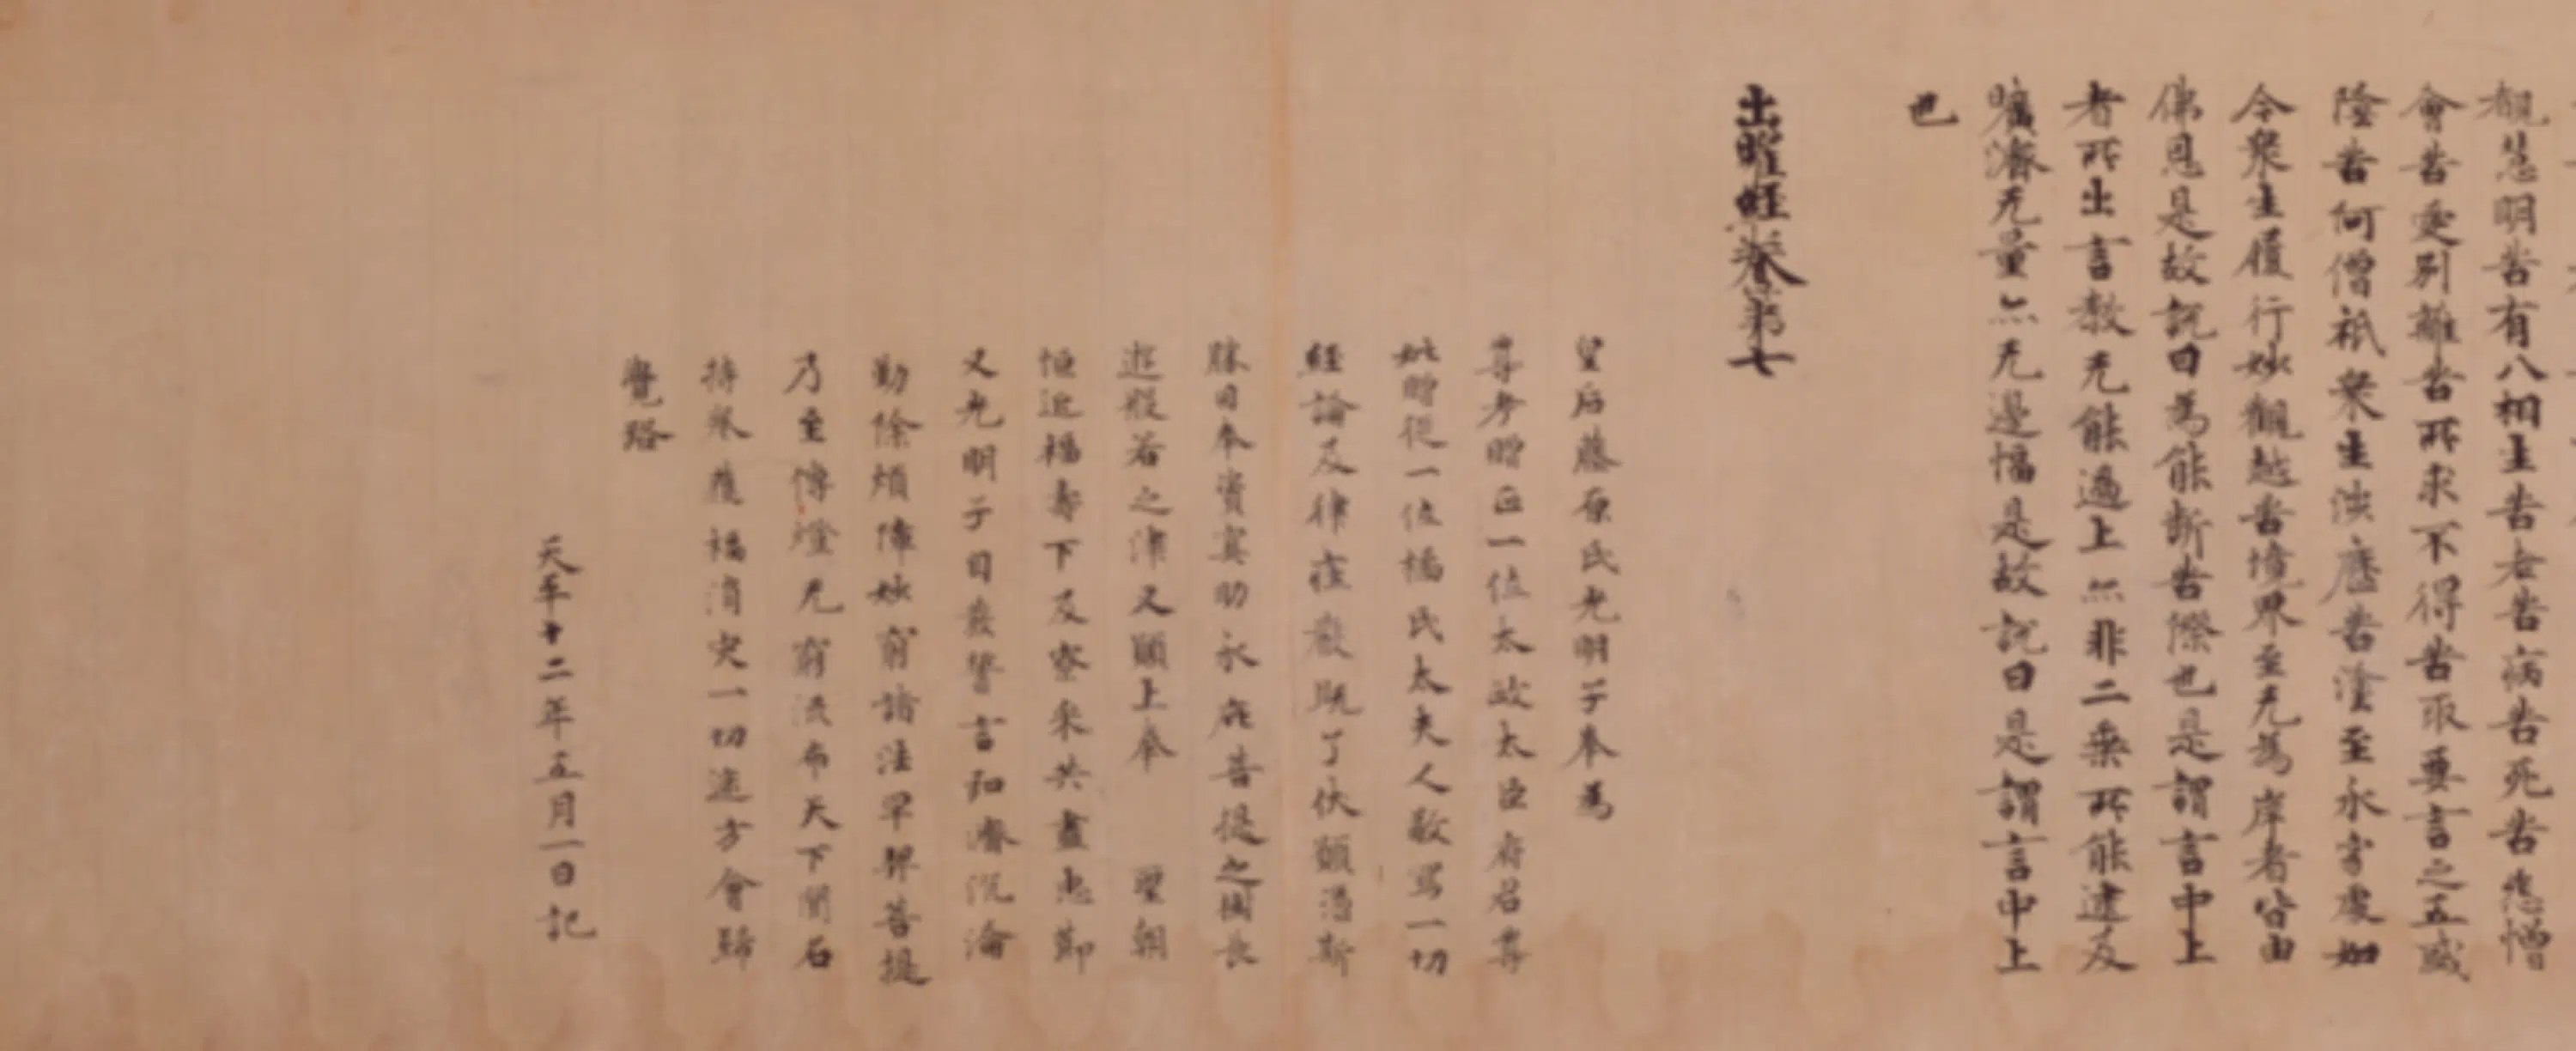 觀慧明苦有八相生苦老苦病苦死苦怨憎
會苦愛別離苦所求不得苦取要言之五盛
陰苦何僧祇衆生涉歷苦塗至永寧處如
今衆生履行妙觀越苦境界至无為岸者皆由
佛恩是故說曰為能斷苦際也是謂言中上
者所出言教无能過上亦非二乘所能逮及
曠濟无量亦无邊幅是故說曰是謂言中上
也
出曜經卷第七
皇后藤原氏光明子奉為
尊考贈正一位太政太臣府君尊
妣贈從一位橘氏太夫人敬寫一切
經論及律莊嚴既了伏願憑斯
勝因奉資冥助永庇菩提之樹長
遊般若之津又願上奉 聖朝
恒延福壽下及寮采共盡忠節
又光明子自發誓言弘濟沉淪
勤除煩障妙窮諸法早契菩提
乃至傳燈无窮流布天下聞名
持卷獲福消灾一切迷方會歸
覺路
天平十二年五月一日記